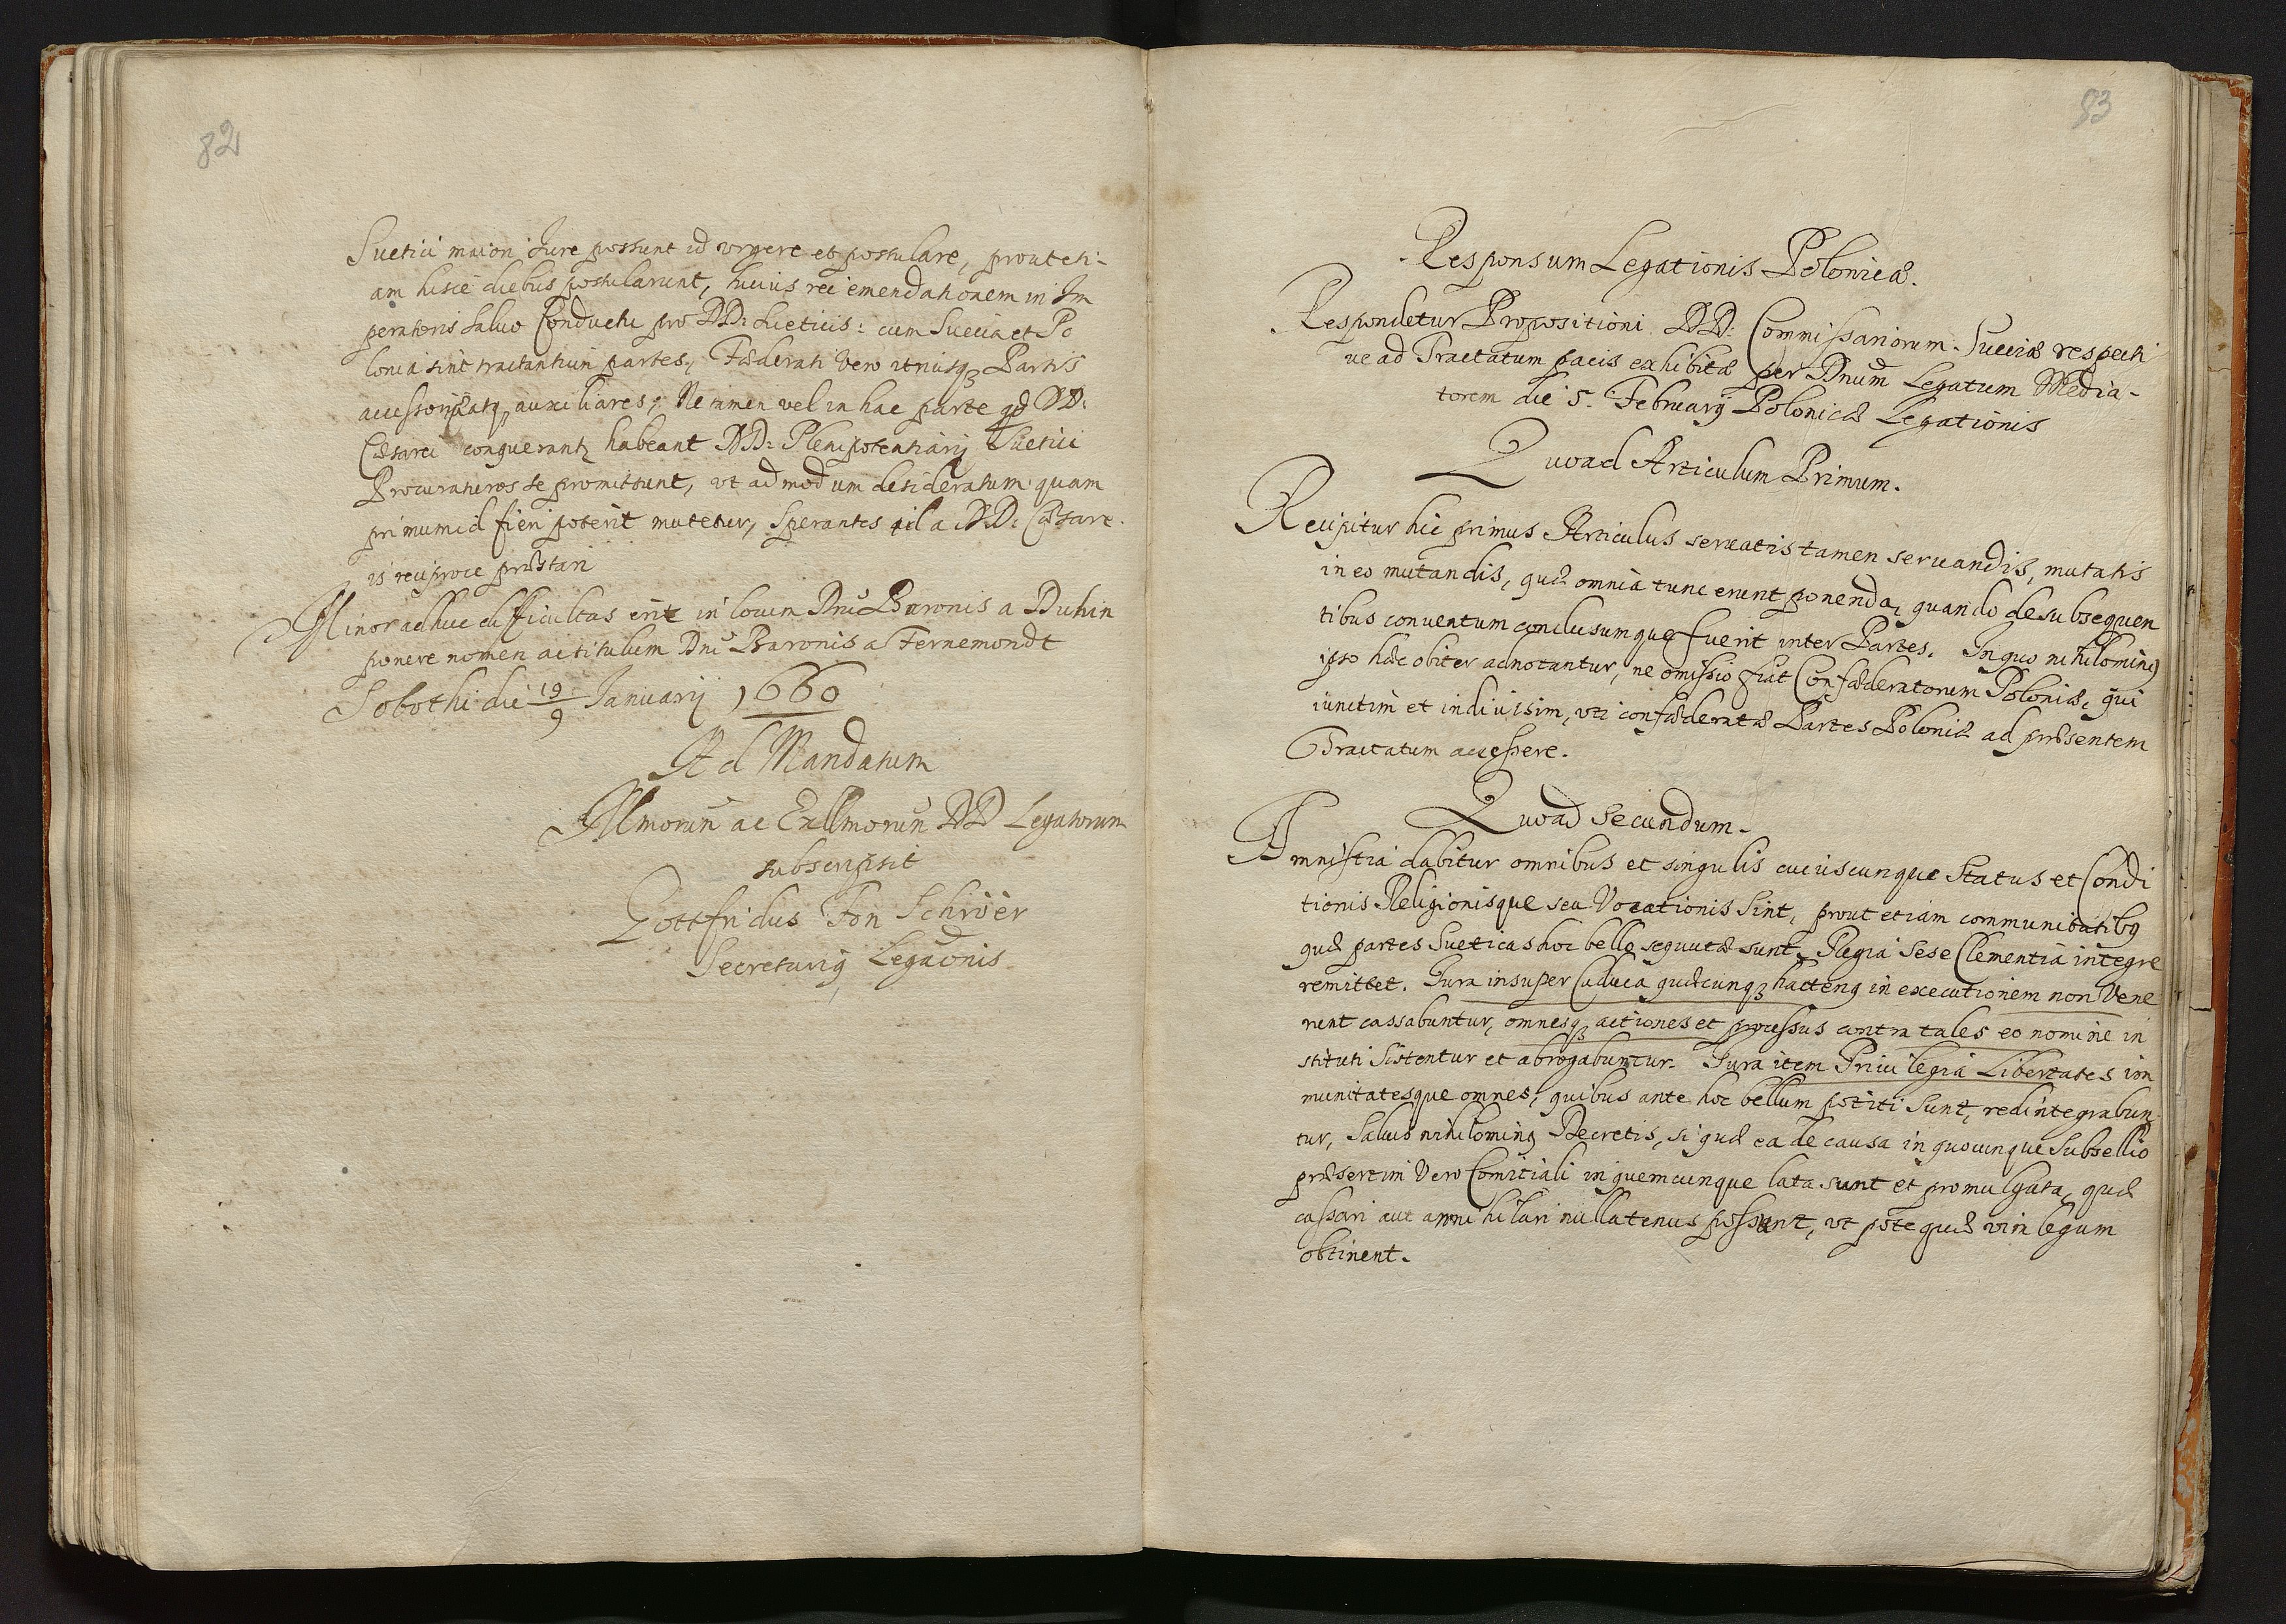 82
Suetici maiori Jure possunt id vrgere et postulare, prout eti-
am hisce diebus postularunt, huius rei emendationem in Im
peratoris Saluo Conductu pro DD: Sueticis: cum Suecia et Po
lonia sint tractantium partes, Fœderati vero utriusq3 Partis
auxiliares, Ne tamen vel in hac parte qd DD:
Cæsarei conquerantr habeant DD: Plenipotentiarij Suetici
Procuraturos se promittunt, vt ad modum desideratum quam
primum id fieri poterit mutetur, Sperantes id a DD: Cæsare-
is reciproce præstari
Minor adhuc difficultas erit in locum Dni Baronis a Duhin
ponere nomen ac titulum Dni Baronis a Fernemondt
Sobothi die 19/9 Januarij 1660
Ad Mandatum
Illmorum ac Exllmorum DD Legatorum
subscripsit
Gottfridus Fon Schröer
Secretarig Legaonis
83
Responsum Legationis Polonicæ.
Respondetur Propositioni DD: Commissariorum Sueciæ respecti
ue ad Tractatum pacis exhibitæ per Dnum Legatum Media-
torem die 5. Februarij Polonicæ Legationis
Quoad Articulum Primum.
Recipitur hic primus Articulus seruatis tamen seruandis, mutatis
in eo mutandis, quæ omnia tunc erunt ponenda, quando de subsequen
tibus conuentum conclusumque fuerit inter Partes. In quo nihiloming
ipso hæc obiter adnotantur, ne omissio fiat Confœderatorum Poloniæ, qui
iunctim et indiuisim, vti confœderatæ Partes Poloniæ ad præsentem
Tractatum accessere.
Quoad secundum.
Amnistia dabitur omnibus et singulis cuiuscunque Status et Condi
tionis Religionisque seu Vocationis sint, prout etiam communitatibg
quæ partes Sueticas hoc bello sequutæ sunt, Regia sese Clementia integre
remittet. Jura insuper Caduca quæcunq3 hacteng in executionem non Vene
runt cassabuntur, omnesq3 actiones et processus contra tales eo nomine in
stituti Sistentur et abrogabuntur. Jura item Priuilegia Libertates im
munitatesque omnes, quibus ante hoc bellum potiti sunt, redintegrabun
tur, Saluis nihiloming Decretis, si quæ ea de causa in quocunque Subsellio
præsertim Vero Comitiali in quemcunque lata sunt et promulgata, quæ
cassari aut annihilari nullatenus possunt, vt pote quæ vim legum
obtinent.